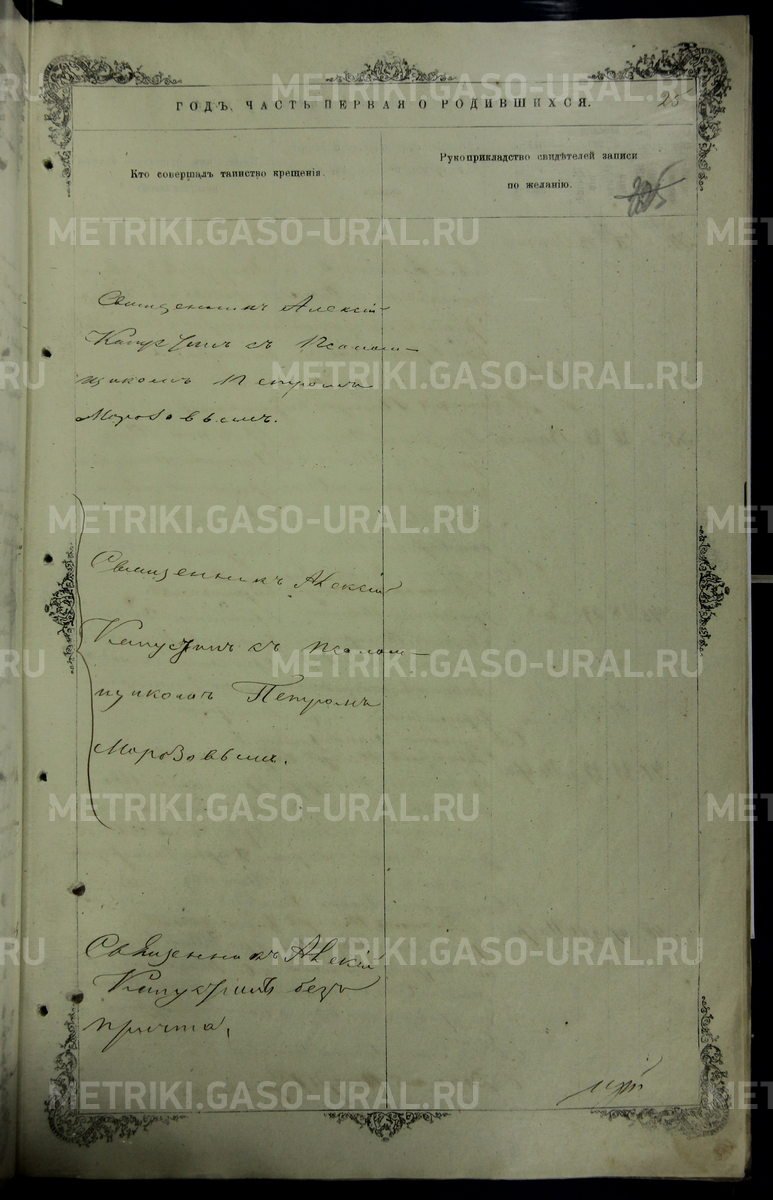 ГОДЪ, ЧАСТЬ ПЕРВАЯ О РОДИВШИХСЯ.
25
Кто совершалъ таинство крещенія.
Рукоприкладство свидѣтелей записи
по желанію.
Священникъ Алексій
Капустинъ съ Псалом-
щикомъ Петромъ
Морозовымъ.
Священникъ Алексій
Капустинъ съ псалом-
щикомъ Петромъ
Морозовымъ.
Священникъ Алексій
Капустинъ безъ
причта.
METRIKI.GASO-URAL.RU